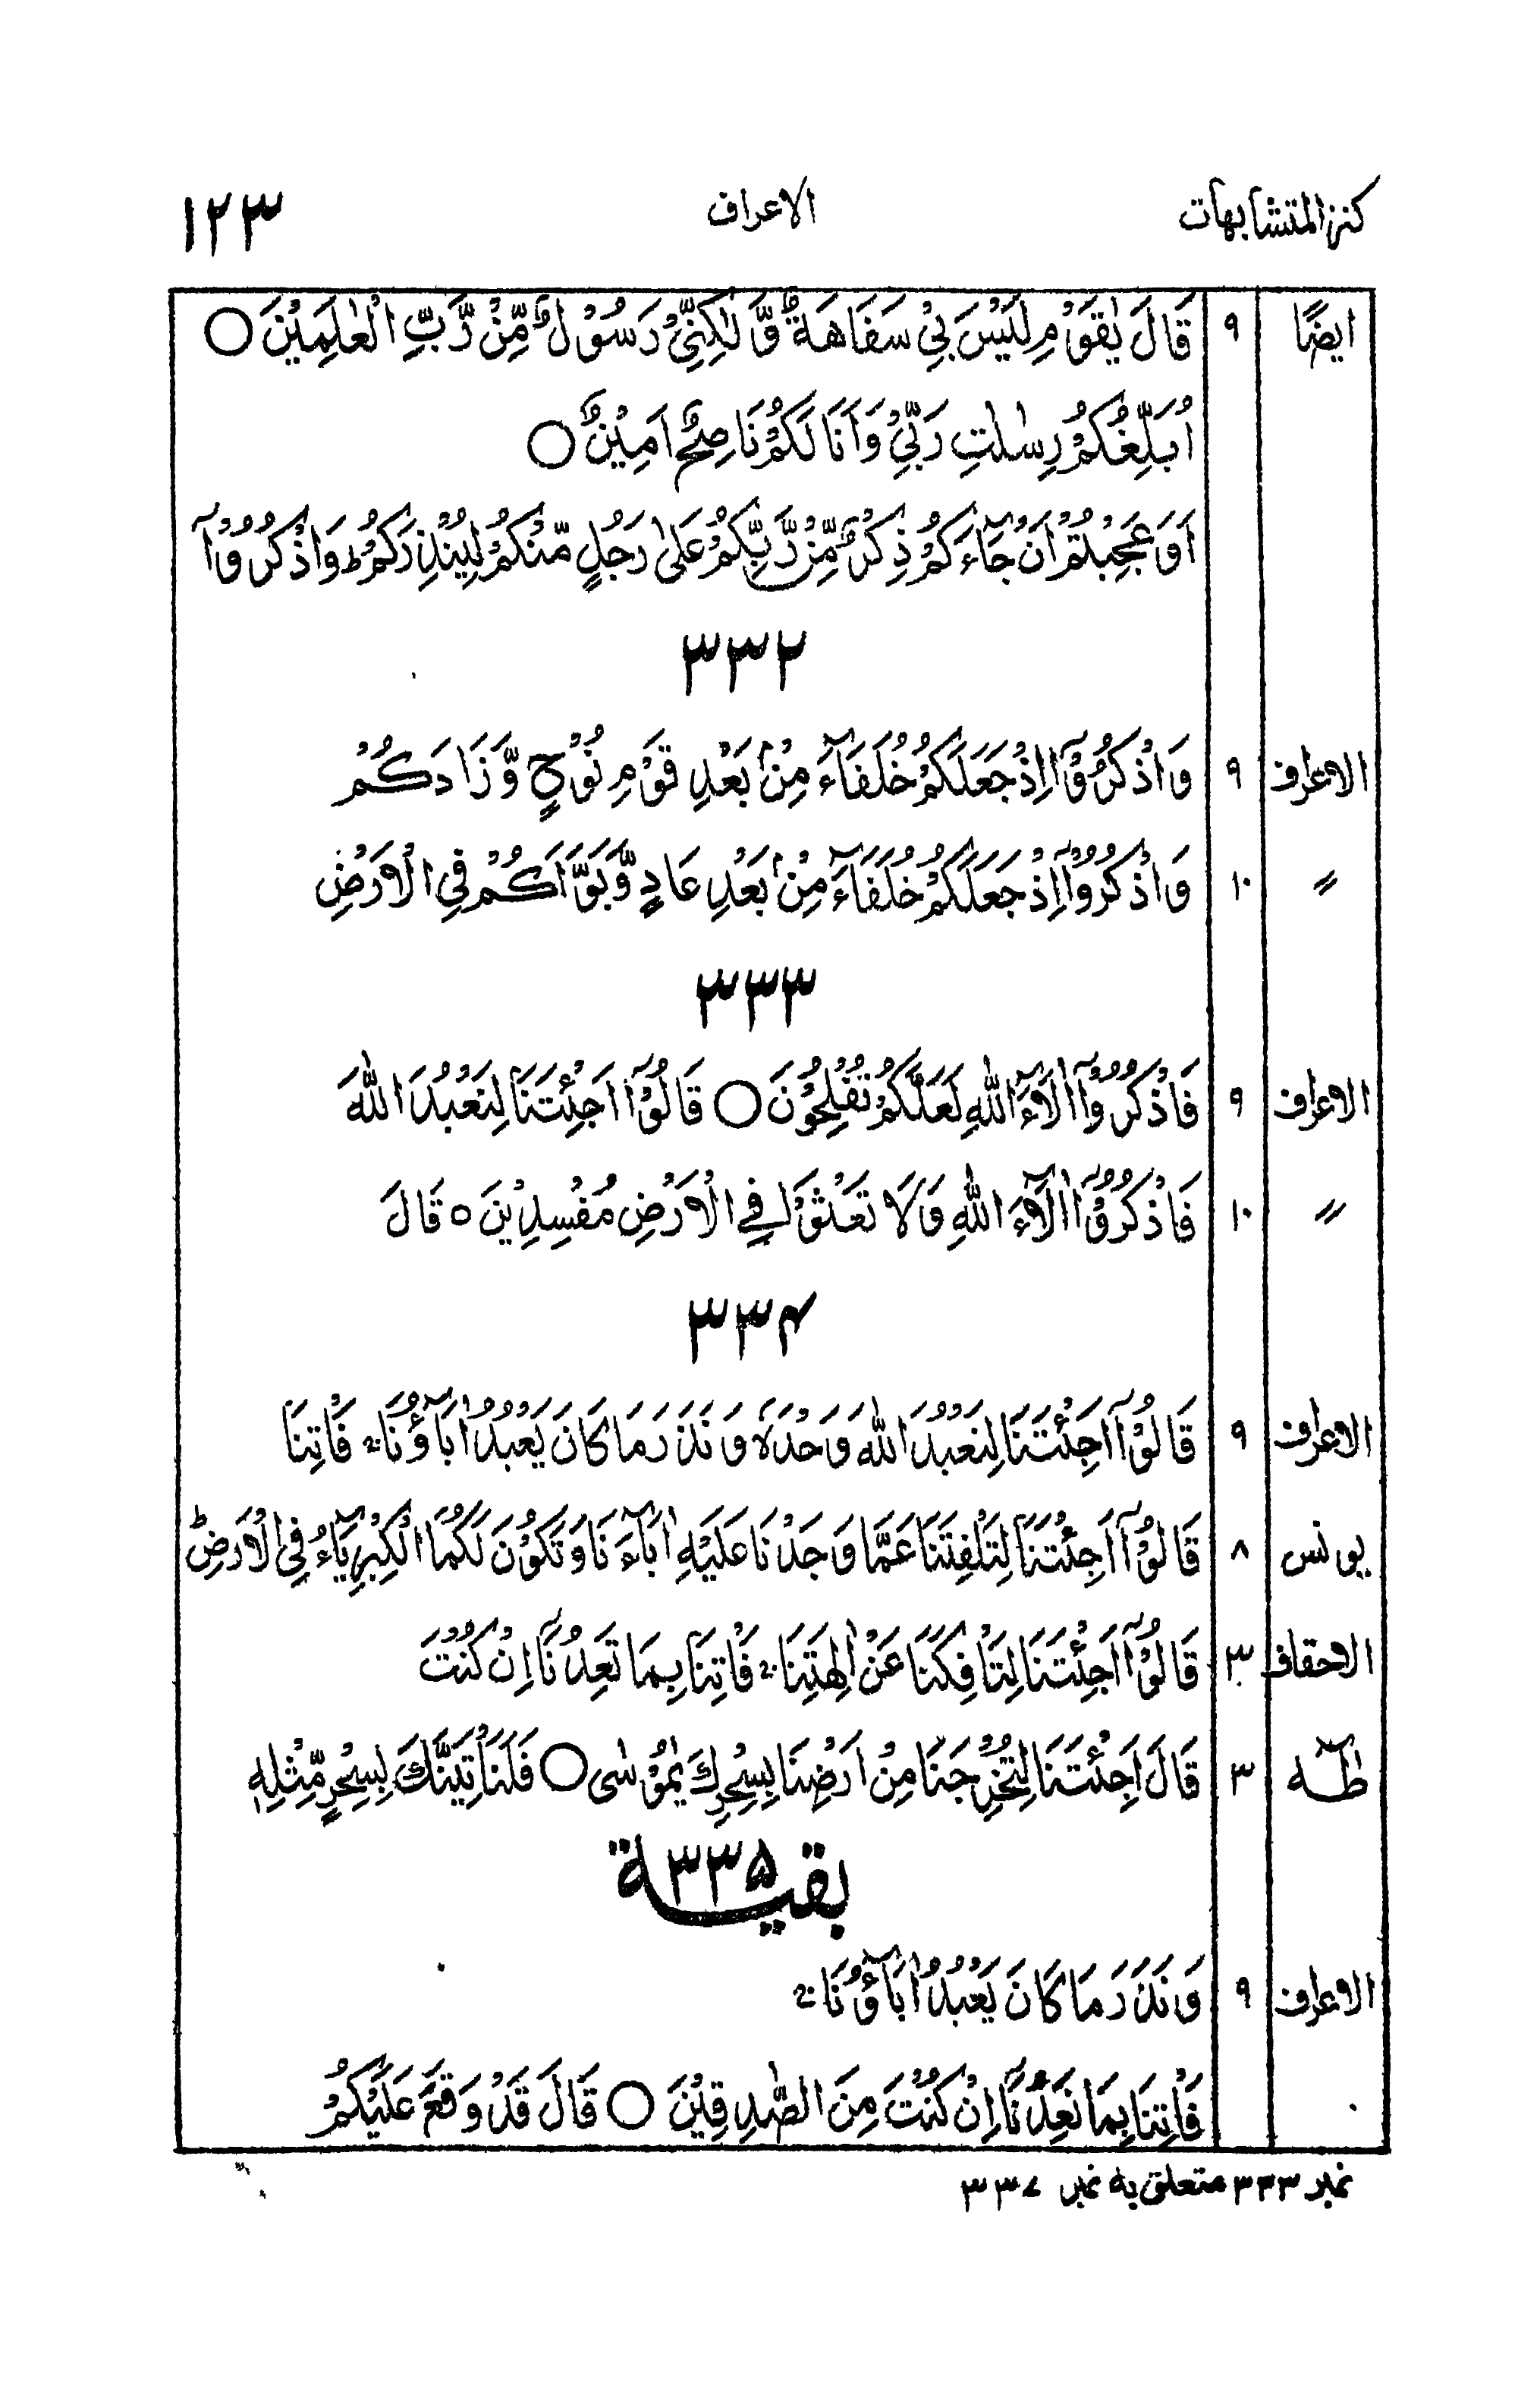 كنز المتشابهات الاعراف ١٢٣
ايضًا ٩ قَالَ يٰقَوْمِ لَيْسَ بِيْ سَفَاهَةٌ وَّلٰكِنِّيْ رَسُوْلٌ مِّنْ رَّبِّ الْعٰلَمِيْنَ ○
اُبَلِّغُكُمْ رِسٰلٰتِ رَبِّيْ وَاَنَا لَكُمْ نَاصِحٌ اَمِيْنٌ ○
اَوَعَجِبْتُمْ اَنْ جَآءَكُمْ ذِكْرٌ مِّنْ رَّبِّكُمْ عَلٰى رَجُلٍ مِّنْكُمْ لِيُنْذِرَكُمْ ؕ وَاذْكُرُوْٓا
٣٣٢
الاعراف ٩ وَاذْكُرُوْٓا اِذْ جَعَلَكُمْ خُلَفَآءَ مِنْۢ بَعْدِ قَوْمِ نُوْحٍ وَّزَادَكُمْ
〃 ١٠ وَاذْكُرُوْٓا اِذْ جَعَلَكُمْ خُلَفَآءَ مِنْۢ بَعْدِ عَادٍ وَّبَوَّاَكُمْ فِي الْاَرْضِ
٣٣٣
الاعراف ٩ فَاذْكُرُوْٓا اٰلَآءَ اللّٰهِ لَعَلَّكُمْ تُفْلِحُوْنَ ○ قَالُوْٓا اَجِئْتَنَا لِنَعْبُدَ اللّٰهَ
〃 ١٠ فَاذْكُرُوْٓا اٰلَآءَ اللّٰهِ وَلَا تَعْثَوْا فِي الْاَرْضِ مُفْسِدِيْنَ ○ قَالَ
٣٣٤
الاعراف ٩ قَالُوْٓا اَجِئْتَنَا لِنَعْبُدَ اللّٰهَ وَحْدَهٗ وَنَذَرَ مَا كَانَ يَعْبُدُ اٰبَآؤُنَا ۚ فَاْتِنَا
يونس ٨ قَالُوْٓا اَجِئْتَنَا لِتَلْفِتَنَا عَمَّا وَجَدْنَا عَلَيْهِ اٰبَآءَنَا وَتَكُوْنَ لَكُمَا الْكِبْرِيَآءُ فِي الْاَرْضِ ؕ
الاحقاف ٣ قَالُوْٓا اَجِئْتَنَا لِتَاْفِكَنَا عَنْ اٰلِهَتِنَا ۚ فَاْتِنَا بِمَا تَعِدُنَآ اِنْ كُنْتَ
طٰهٰ ٣ قَالَ اَجِئْتَنَا لِتُخْرِجَنَا مِنْ اَرْضِنَا بِسِحْرِكَ يٰمُوْسٰى ○ فَلَنَاْتِيَنَّكَ بِسِحْرٍ مِّثْلِهٖ
بقية ٣٣٥
الاعراف ٩ وَنَذَرَ مَا كَانَ يَعْبُدُ اٰبَآؤُنَا ۚ
فَاْتِنَا بِمَا تَعِدُنَآ اِنْ كُنْتَ مِنَ الصّٰدِقِيْنَ ○ قَالَ قَدْ وَقَعَ عَلَيْكُمْ
نمبر ٣٣٣ متعلق به نمبر ٣٣٧